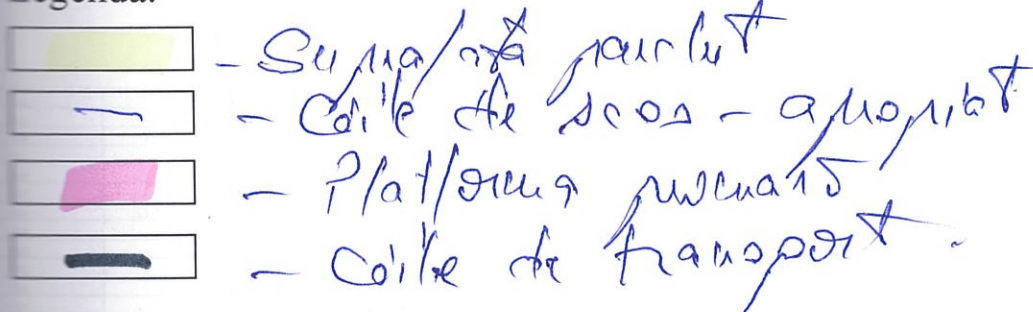 Legenda:
- Suprafață parchet
- Căile de scos - apropiat
- Platforma primară
- Căile de transport.